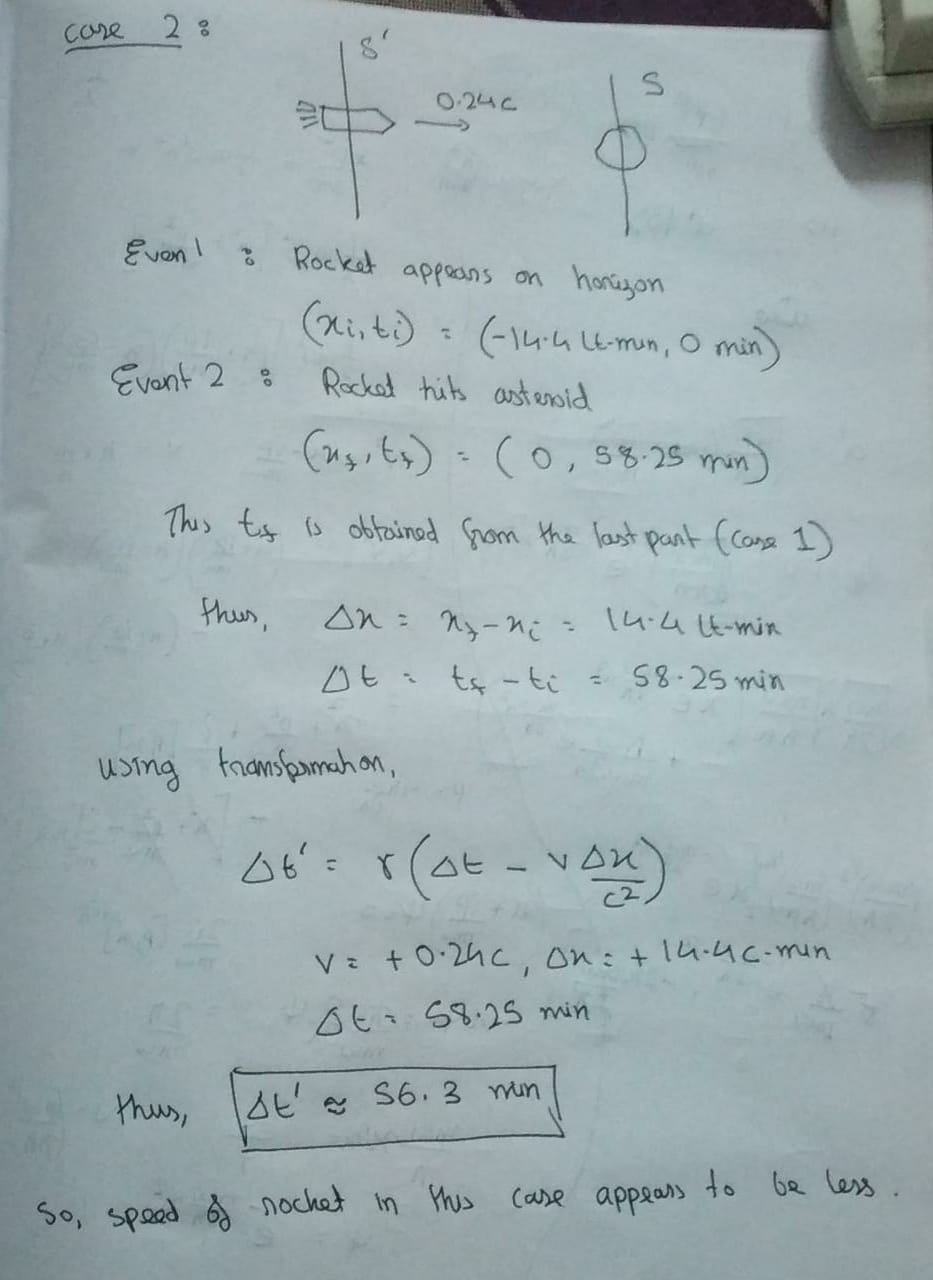 case 2 :
S'
0.24c
S
Event 1 : Rocket appears on horizon
(xi, ti) = (-14.4 lt-min, 0 min)
Event 2 : Rocket hits asteroid
(xf, tf) = (0, 58.25 min)
This tf is obtained from the last part (case 1)
thus, Δx = xf - xi = 14.4 lt-min
Δt = tf - ti = 58.25 min
using transformation,
Δt' = γ(Δt - vΔx/c²)
v = +0.24c, Δx = +14.4c-min
Δt = 58.25 min
thus, Δt' ≈ 56.3 min
So, speed of rocket in this case appears to be less.